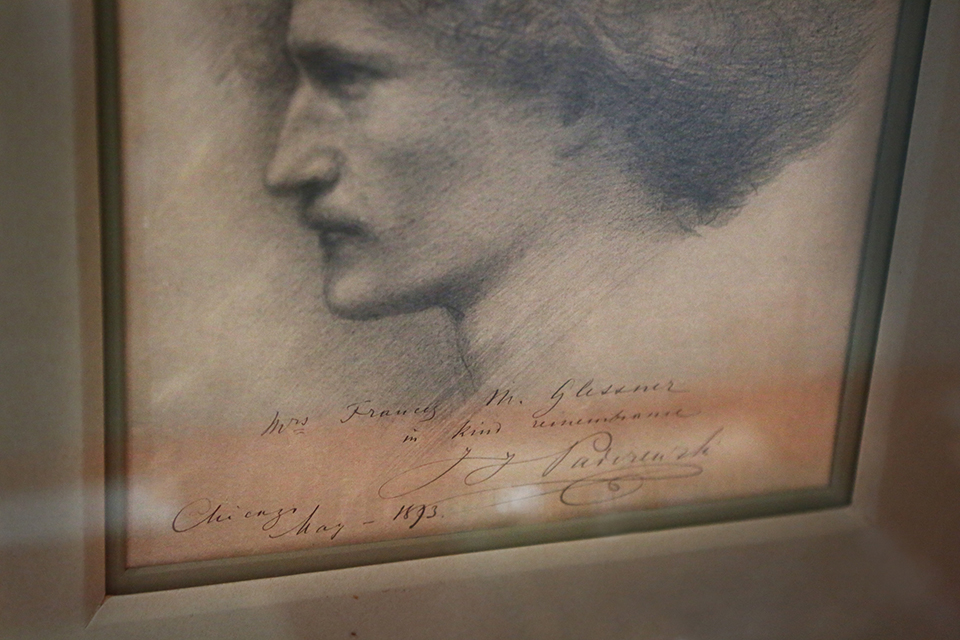 Mrs Francis M. Glessner
in kind remembrance
J J Paderewski
Chicago
May – 1893.